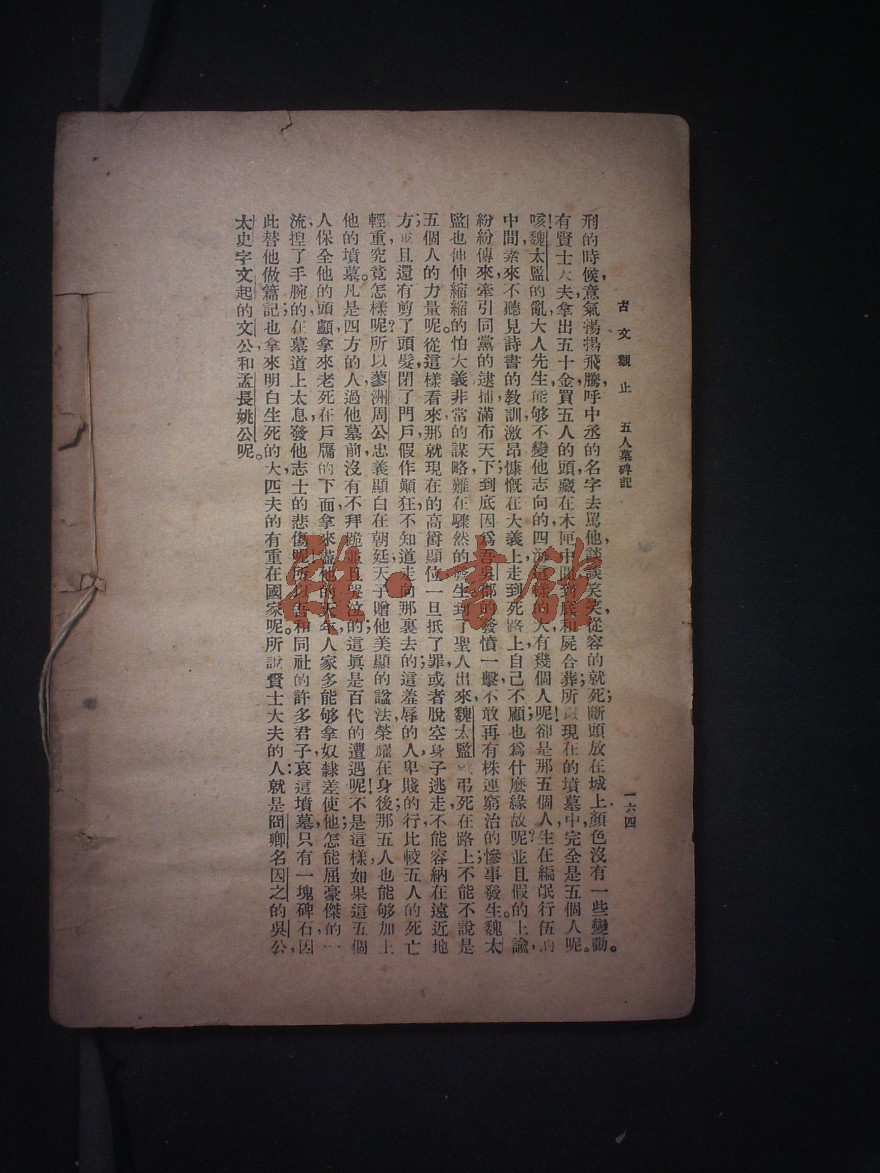 古文觀止 五人墓碑記 一六四
刑的時候，意氣揚揚飛騰，呼中丞的名字去罵他，談談笑笑，從容的就死；斷頭放在城上，顏色沒有一些變動。
有賢士大夫拿出五十金，買五人的頭，藏在木匣中間，到底和屍合葬；所以現在的墳墓中，完全是五個人呢。
咳！魏太監的亂，大人先生，能够不變他志向的，四海這樣的大，有幾個人呢！卻是那五個人，生在編氓行伍的
中間，素來不聽見詩書的教訓，激昂慷慨，在大義上走到死路上，自己不顧，也爲什麼緣故呢？並且假的上諭，
紛紛傳來，牽引同黨的逮捕，滿布天下；到底因爲吾吳郡的發憤一擊，不敢再有株連窮治的慘事發生。魏太
監也伸伸縮縮的怕大義，非常的謀略，難在驟然的發生；到了聖人出來，魏太監 弔死在路上，不能不說是
五個人的力量呢。從這樣看來，那就現在的高爵顯位，一旦抵了罪，或者脫空身子逃走，不能容納在遠近地
方；並且還有剪了頭髮，閉了門戶，假作顛狂，不知道走向那裏去的；這羞辱的人，卑賤的行，比較五人的死亡，
輕重究竟怎樣呢？所以蓼洲周公，忠義顯白在朝廷，天子贈他美顯的謚法，榮耀在身後；那五人也能够加土
他的墳墓，凡是四方的人，過他墓前，沒有不拜跪並且哭泣的；這眞是百代的遭遇呢！不是這樣，如果這五個
人保全他的頭顱，拿來老死在戶牖的下面，拿來盡他的天年，人家多能够拿奴隸差使他；怎能屈豪傑的一
流，揑了手腕的，在墓道上太息，發他志士的悲傷呢！所以吾和同社的許多君子，哀這墳墓，只有一塊碑石，因
此替他做篇記；也拿來明白生死的大，匹夫的有重在國家呢。所說賢士大夫的人：就是冏卿名因之的吳公，
太史字文起的文公，和孟長姚公呢。
雜·書館